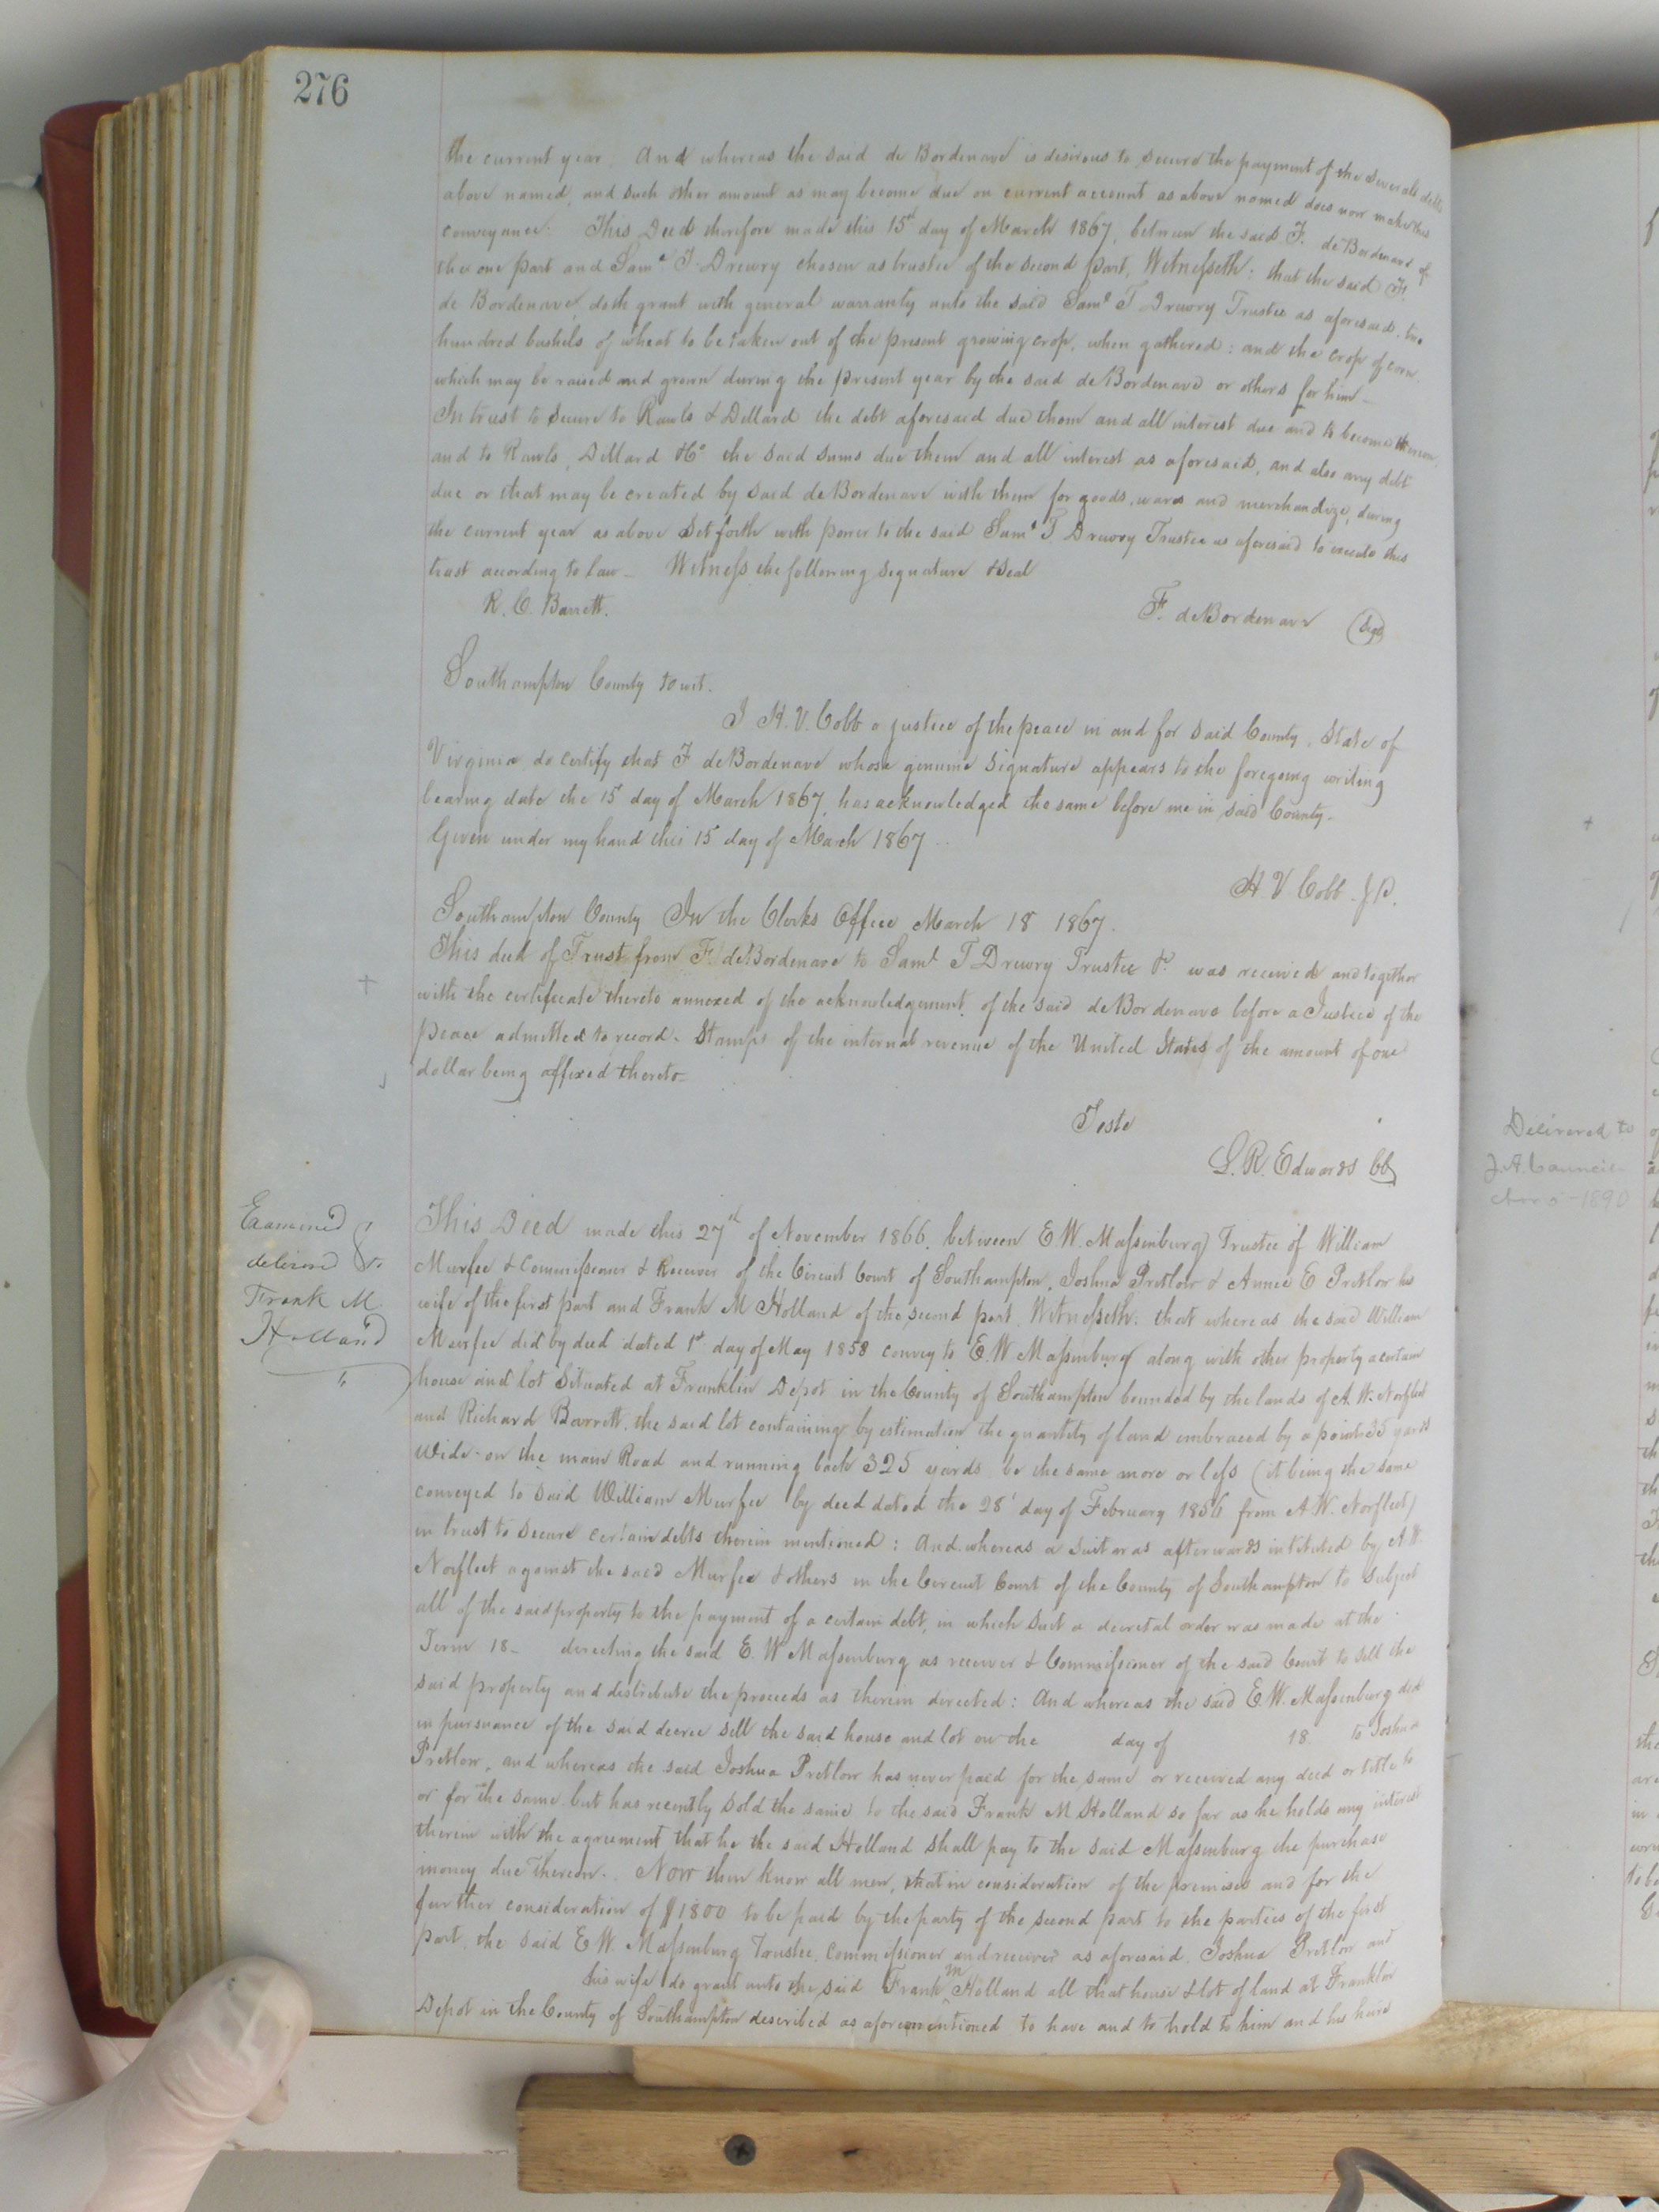 276
the current year. And whereas the said de Bordenave is desirous to secure the payment of the several debts
above named, and such other amount as may become due on current account as above named does now make this
conveyance. This Deed therefore made this 15th day of March 1867, between the said F. de Bordenave of
the one part and Saml T. Drewry chosen as trustee of the second part, Witnesseth: that the said F.
de Bordenave, doth grant with general warranty unto the said Saml T Drewry Trustee as aforesaid, two
hundred bushels of wheat to be taken out of the present growing crop, when gathered: and the crop of corn
which may be raised and grown during the present year by the said de Bordenave or others for him —
In trust to secure to Rawls & Dillard the debt aforesaid due them and all interest due and to become thereon,
and to Rawls, Dillard & Co the said sums due them and all interest as aforesaid, and also any debt
due or that may be created by said de Bordenave with them for goods, wares and merchandize, during
the current year as above set forth with power to the said Saml T. Drewry Trustee as aforesaid to execute this
trust according to law — Witness the following signature & seal
R. C. Barrett.
F. de Bordenave (Seal)
Southampton County to wit.
I H. V. Cobb a justice of the peace in and for said County, State of
Virginia, do certify that F de Bordenave whose genuine signature appears to the foregoing writing
bearing date the 15 day of March 1867, has acknowledged the same before me in said County.
Given under my hand this 15 day of March 1867
H. V. Cobb. J.P.
Southampton County In the Clerks Office March 18 1867.
This deed of Trust from F. de Bordenave to Saml T Drewry Trustee &c was received and together
with the certificate thereto annexed of the acknowledgement of the said de Bordenave before a Justice of the
peace admitted to record. Stamps of the internal revenue of the United States of the amount of one
dollar being affixed thereto —
Teste
L. R. Edwards CC
Examined &
delivered
Frank M
Holland
This Deed made this 27th of November 1866, between E W. Massenburg Trustee of William
Murfee & Commissioner & Receiver of the Circuit Court of Southampton, Joshua Pretlow & Annie E Pretlow his
wife of the first part and Frank M Holland of the second part, Witnesseth: that whereas the said William
Murfee did by deed dated 1st day of May 1858 convey to E. W Massenburg along with other property a certain
house and lot situated at Franklin Depot in the County of Southampton bounded by the lands of A. W. Norfleet
and Richard Barrett, the said lot containing by estimation the quantity of land embraced by a point 35 yards
wide on the main Road and running back 325 yards be the same more or less (it being the same
conveyed to said William Murfee by deed dated the 28th day of February 1856 from A. W. Norfleet)
in trust to secure certain debts therein mentioned: And whereas a suit was afterwards instituted by A. W.
Norfleet against the said Murfee & others in the Circuit Court of the County of Southampton to subject
all of the said property to the payment of a certain debt, in which suit a decretal order was made at the
Term 18— directing the said E. W Massenburg as receiver & Commissioner of the said Court to sell the
said property and distribute the proceeds as therein directed: And whereas the said E W. Massenburg did
in pursuance of the said decree sell the said house and lot on the day of 18 to Joshua
Pretlow, and whereas the said Joshua Pretlow has never paid for the same or received any deed or title to
or for the same but has recently sold the same to the said Frank M Holland so far as he holds any interest
therein with the agreement that he the said Holland shall pay to the said Massenburg the purchase
money due thereon. Now then know all men, that in consideration of the premises and for the
further consideration of $1800 to be paid by the party of the second part to the parties of the first
part, the said E W. Massenburg Trustee, commissioner and receiver as aforesaid, Joshua Pretlow and
his wife do grant unto the said Frank M Holland all that house & lot of land at Franklin
Depot in the County of Southampton described as aforementioned to have and to hold to him and his heirs
Delivered to
J. A. Council
1890